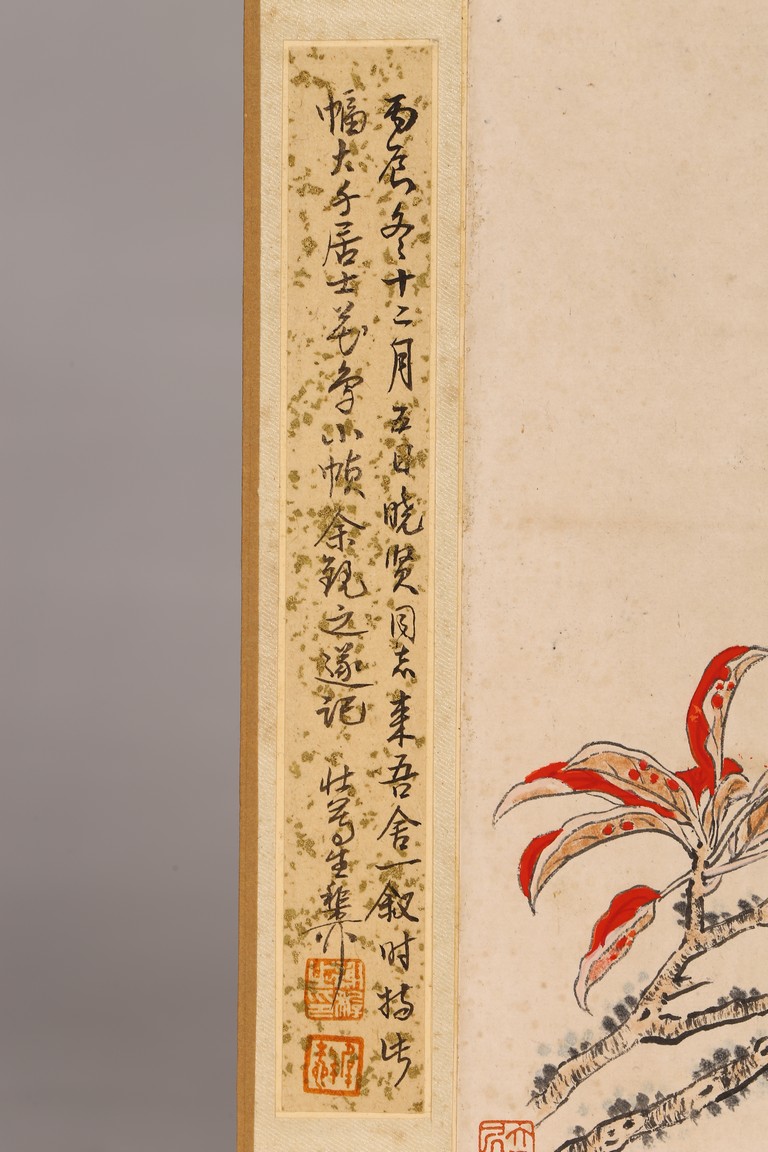 丙辰冬十二月五日晓贤同志来吾舍一叙时持此
幅大千居士花鸟小帧余観之遂记 壮萼生